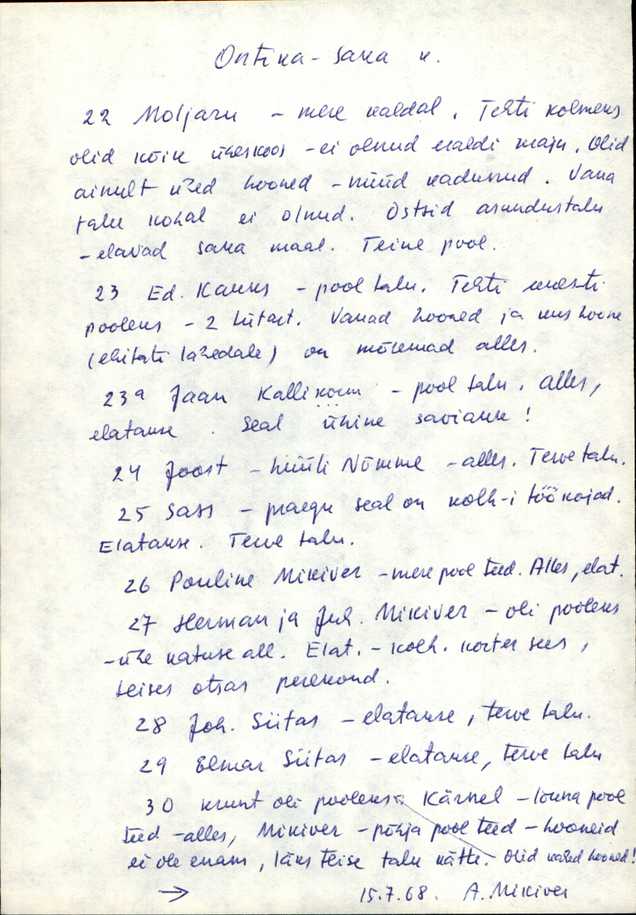 Ontika-Saka k.
22 Moljaru - mere kaldal. Tehti kolmeks
olid kõik üheskoos - ei olnud eraldi maju. Olid
ainult ühed hooned - nüüd kadunud. Vana
talu kohal ei olnud. Ostsid asundustalu
- elavad Saka maal. Teine pool.
23 Ed. - pool talu. Tehti
pooleks - 2 Vanad hooned ja uus hoone
(ehitati lähedale) on mõlemad alles.
23a Jaan Kallikorm - pool talu. alles,
elatakse. Seal ühine saviauk!
24 Joost - hüüti Nõmme - alles. Terve talu.
25 Sass - praegu seal on kolh-i töökojad.
Elatakse. Terve talu.
26 Pauline Mikiver - mere pool teed. Alles, elat.
27 Herman ja Juh. Mikiver - oli pooleks
- ühe katuse all. Elat. - kolh. korter sees,
teises otsas perekond.
28 Joh. Siitas - elatakse, terve talu.
29 Elmar Siitas - elatakse, terve talu
30 krunt oli pooleks: Kärnel - lõuna pool
teed - alles, Mikiver - põhja pool teed - hooneid
ei ole enam, läks teise talu kätte. - Olid vahed hooned!
→ 15.7.68. A. Mikiver